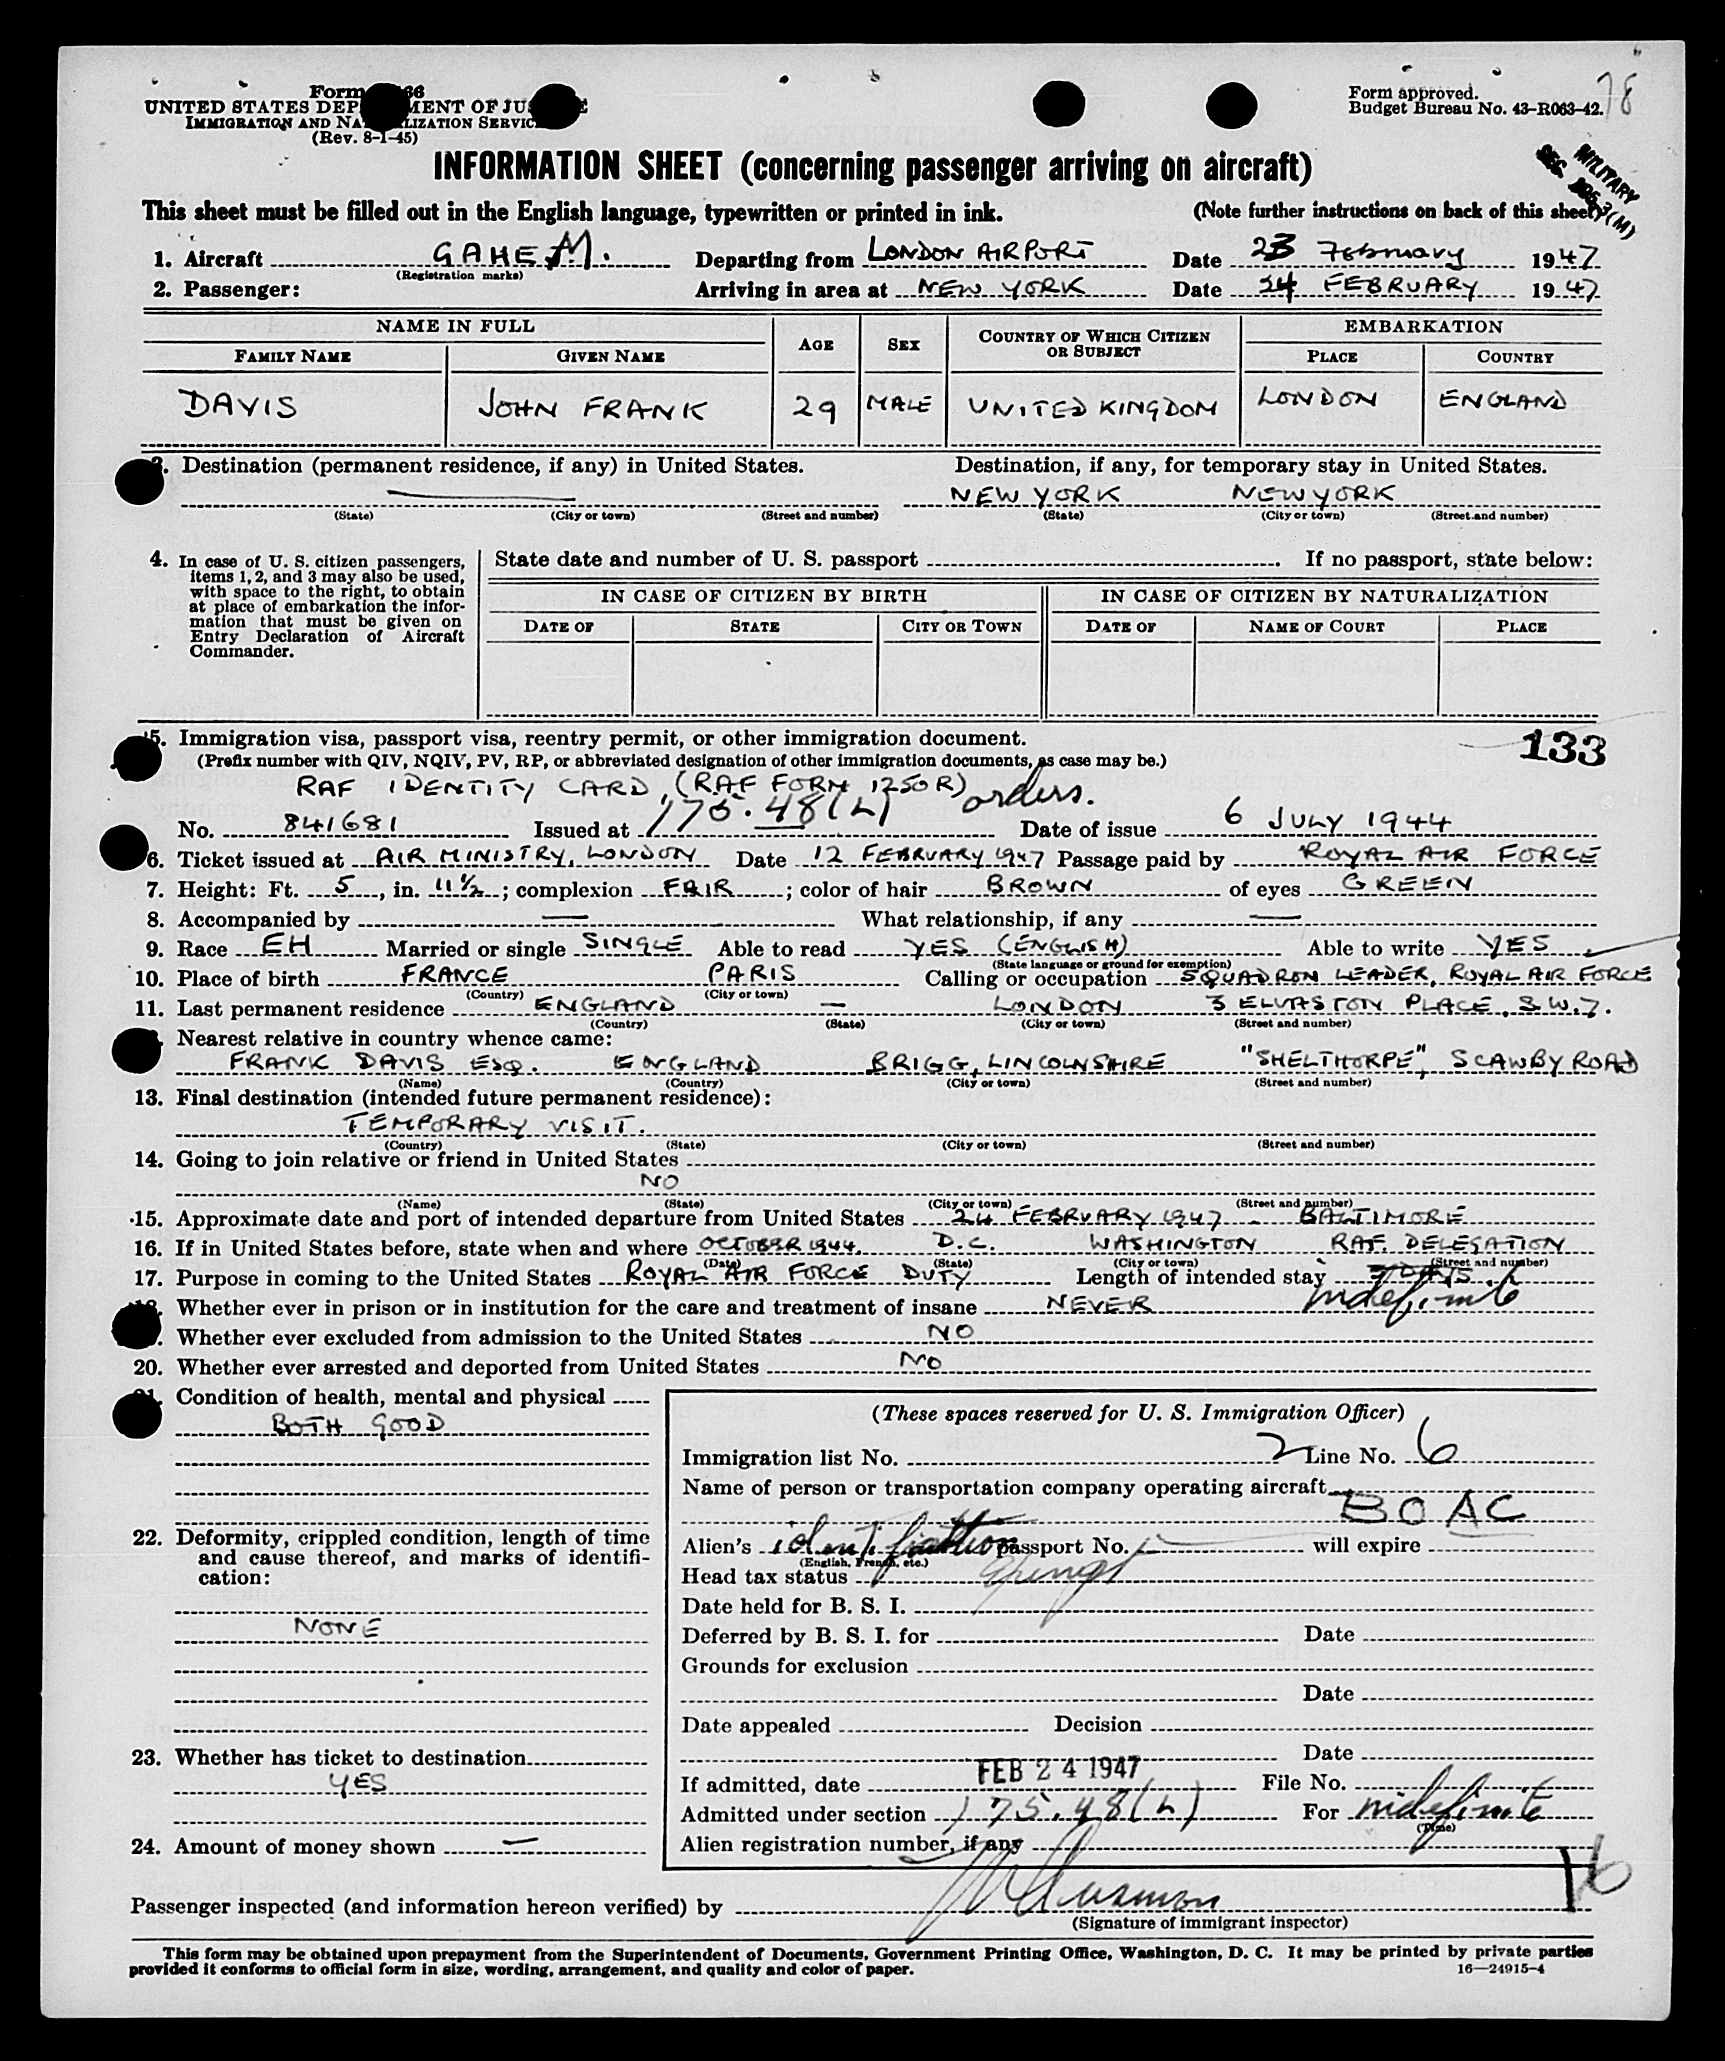 Form 66
UNITED STATES DEP MENT OF JU E
IMMIGRATION AND NA LIZATION SERVIC
(Rev. 8-1-45)
Form approved.
Budget Bureau No. 43-R063-42.
78
MILITARY
SEC. (M)
INFORMATION SHEET (concerning passenger arriving on aircraft)
This sheet must be filled out in the English language, typewritten or printed in ink. (Note further instructions on back of this sheet)
1. Aircraft GAHEM. Departing from LONDON AIRPORT Date 23 February 1947
(Registration marks)
2. Passenger: Arriving in area at NEW YORK Date 24 FEBRUARY 1947
NAME IN FULL AGE SEX COUNTRY OF WHICH CITIZEN OR SUBJECT EMBARKATION
FAMILY NAME GIVEN NAME PLACE COUNTRY
DAVIS JOHN FRANK 29 MALE UNITED KINGDOM LONDON ENGLAND
3. Destination (permanent residence, if any) in United States. Destination, if any, for temporary stay in United States.
NEW YORK NEW YORK
(State) (City or town) (Street and number) (State) (City or town) (Street and number)
4. In case of U. S. citizen passengers, items 1, 2, and 3 may also be used, with space to the right, to obtain at place of embarkation the information that must be given on Entry Declaration of Aircraft Commander.
State date and number of U. S. passport . If no passport, state below:
IN CASE OF CITIZEN BY BIRTH IN CASE OF CITIZEN BY NATURALIZATION
DATE OF STATE CITY OR TOWN DATE OF NAME OF COURT PLACE
5. Immigration visa, passport visa, reentry permit, or other immigration document. 133
(Prefix number with QIV, NQIV, PV, RP, or abbreviated designation of other immigration documents, as case may be.)
RAF IDENTITY CARD, (RAF FORM 1250R) orders.
No. 841681 Issued at 175.48(L) Date of issue 6 JULY 1944
6. Ticket issued at AIR MINISTRY, LONDON Date 12 FEBRUARY 1947 Passage paid by ROYAL AIR FORCE
7. Height: Ft. 5, in. 11½; complexion FAIR; color of hair BROWN of eyes GREEN
8. Accompanied by — What relationship, if any —
9. Race EH Married or single SINGLE Able to read YES (ENGLISH) Able to write YES
(State language or ground for exemption)
10. Place of birth FRANCE PARIS Calling or occupation SQUADRON LEADER, ROYAL AIR FORCE
(Country) (City or town)
11. Last permanent residence ENGLAND — LONDON 3 ELVASTON PLACE, S.W.7.
(Country) (State) (City or town) (Street and number)
Nearest relative in country whence came:
FRANK DAVIS ESQ. ENGLAND BRIGG, LINCOLNSHIRE "SHELTHORPE", SCAWBY ROAD
(Name) (Country) (City or town) (Street and number)
13. Final destination (intended future permanent residence):
TEMPORARY VISIT.
(Country) (State) (City or town) (Street and number)
14. Going to join relative or friend in United States
NO
(Name) (State) (City or town) (Street and number)
15. Approximate date and port of intended departure from United States 24 FEBRUARY 1947 - BALTIMORE
16. If in United States before, state when and where OCTOBER 1944. D.C. WASHINGTON RAF. DELEGATION
(Date) (State) (City or town) (Street and number)
17. Purpose in coming to the United States ROYAL AIR FORCE DUTY Length of intended stay DAYS. indefinite
18. Whether ever in prison or in institution for the care and treatment of insane NEVER
. Whether ever excluded from admission to the United States NO
20. Whether ever arrested and deported from United States NO
21. Condition of health, mental and physical
BOTH GOOD
22. Deformity, crippled condition, length of time and cause thereof, and marks of identification:
NONE
23. Whether has ticket to destination
YES
24. Amount of money shown —
(These spaces reserved for U. S. Immigration Officer)
Immigration list No. 2 Line No. 6
Name of person or transportation company operating aircraft
BOAC
Alien's identification passport No. — will expire
(English, French, etc.)
Head tax status
Date held for B. S. I.
Deferred by B. S. I. for Date
Grounds for exclusion
Date
Date appealed Decision
Date
If admitted, date FEB 24 1947 File No.
Admitted under section 175.48(L) For indefinite
(Time)
Alien registration number, if any
16
Passenger inspected (and information hereon verified) by
(Signature of immigrant inspector)
This form may be obtained upon prepayment from the Superintendent of Documents, Government Printing Office, Washington, D. C. It may be printed by private parties
provided it conforms to official form in size, wording, arrangement, and quality and color of paper. 16—24915-4